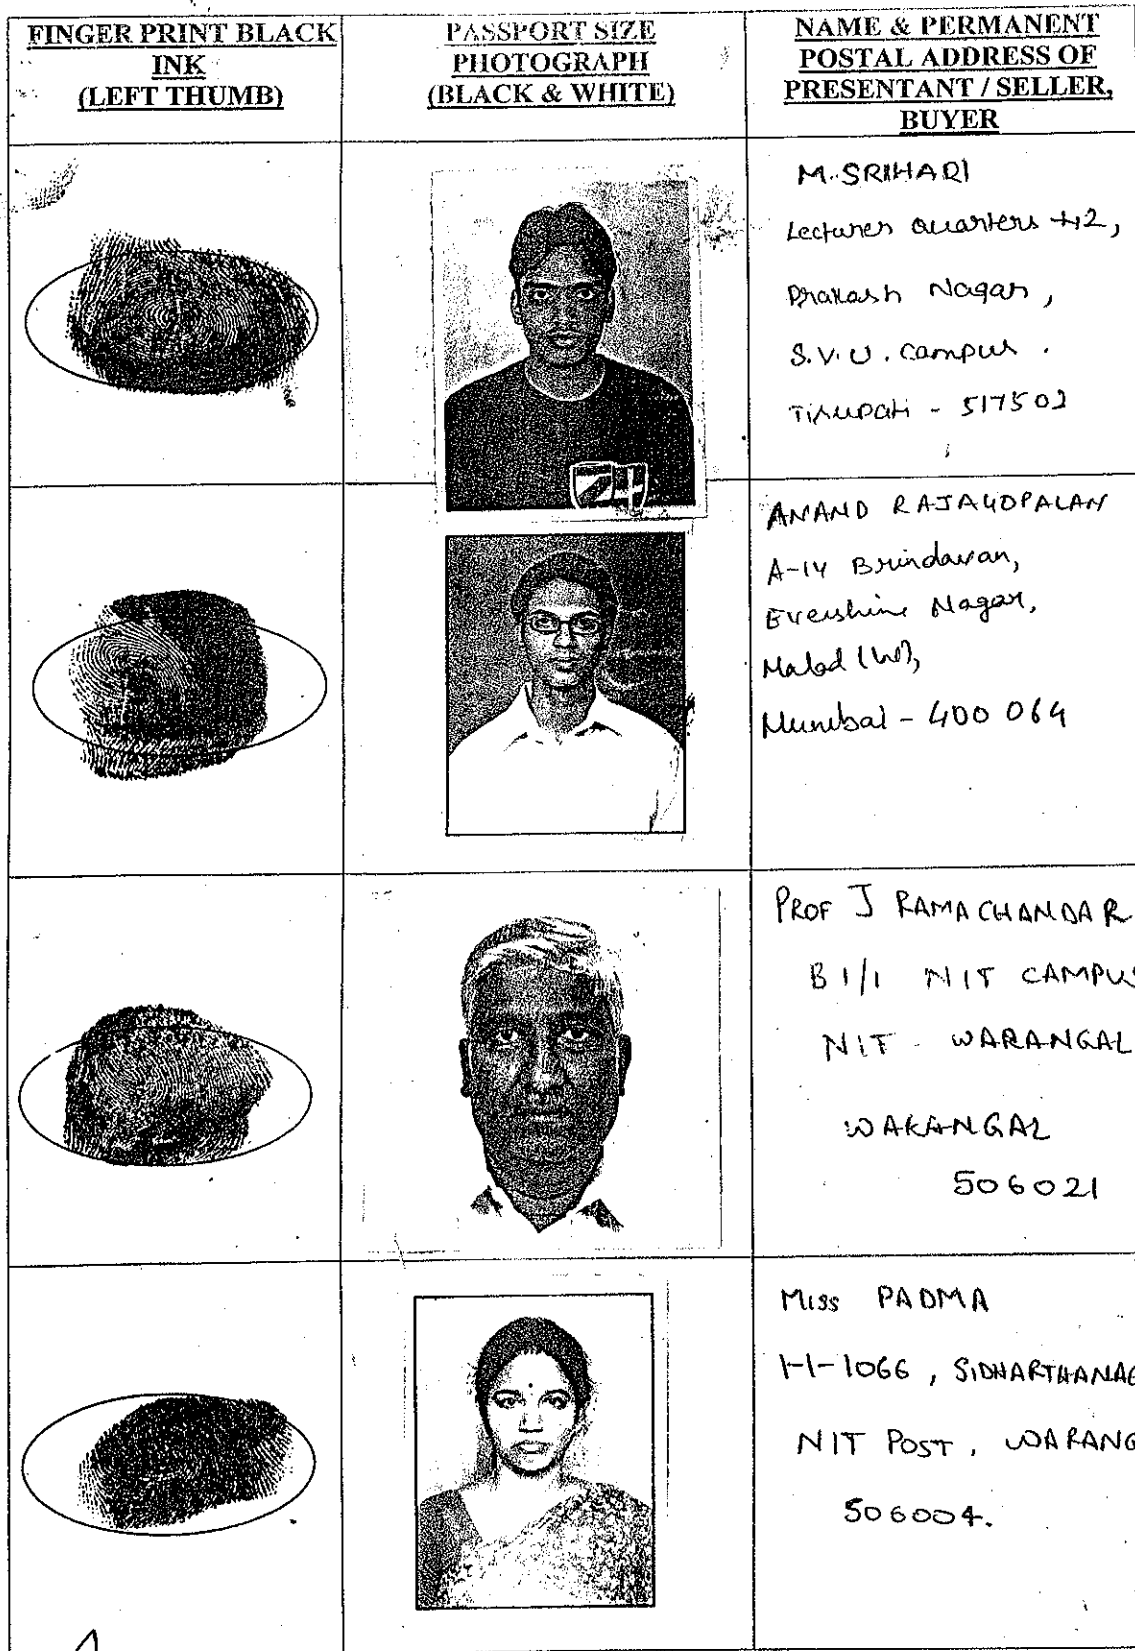 FINGER PRINT BLACK
INK
(LEFT THUMB)
PASSPORT SIZE
PHOTOGRAPH
(BLACK & WHITE)
NAME & PERMANENT
POSTAL ADDRESS OF
PRESENTANT / SELLER,
BUYER
M. SRIHARI
Lecturer Quarters 42,
Prakash Nagar,
S.V.U. Campus.
Tirupati - 517502
ANAND RAJAGOPALAN
A-14 Brindavan,
Evershine Nagar,
Malad (W),
Mumbai - 400 064
PROF J RAMACHANDAR
B 1/1 NIT CAMPUS
NIT - WARANGAL
WARANGAL
506021
Miss PADMA
1-1-1066, SIDHARTHANAG
NIT POST, WARANG
506004.